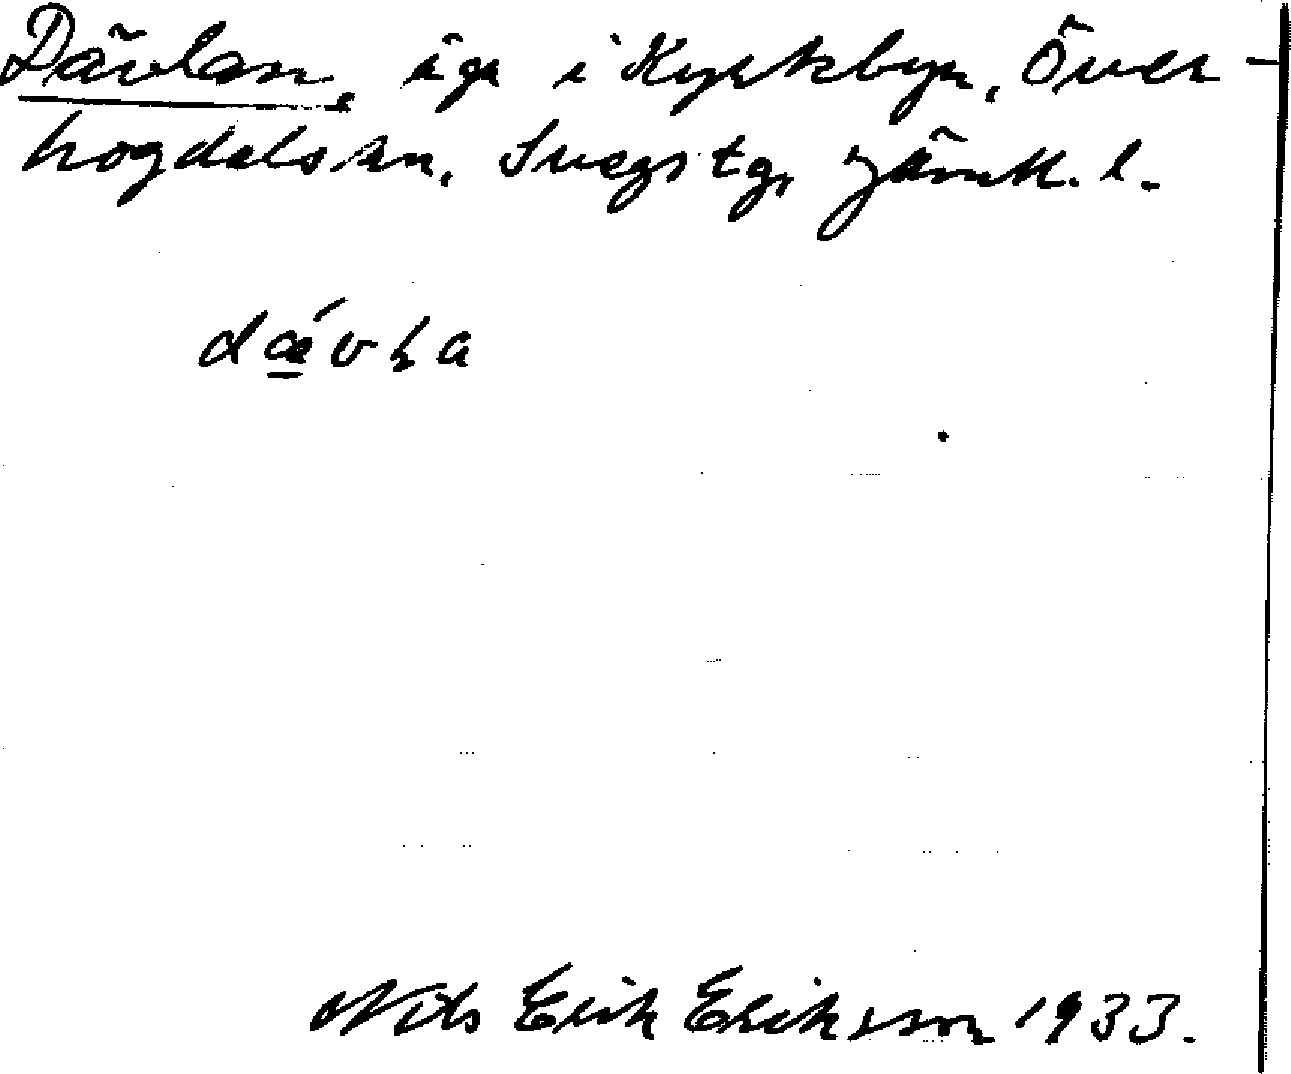 Dävlan, äga i Kyrkbyn, Över-
hogdals sn, Svegs tg, Jämtl. l.
dǽvḷa
Nils Erik Erikson 1933.